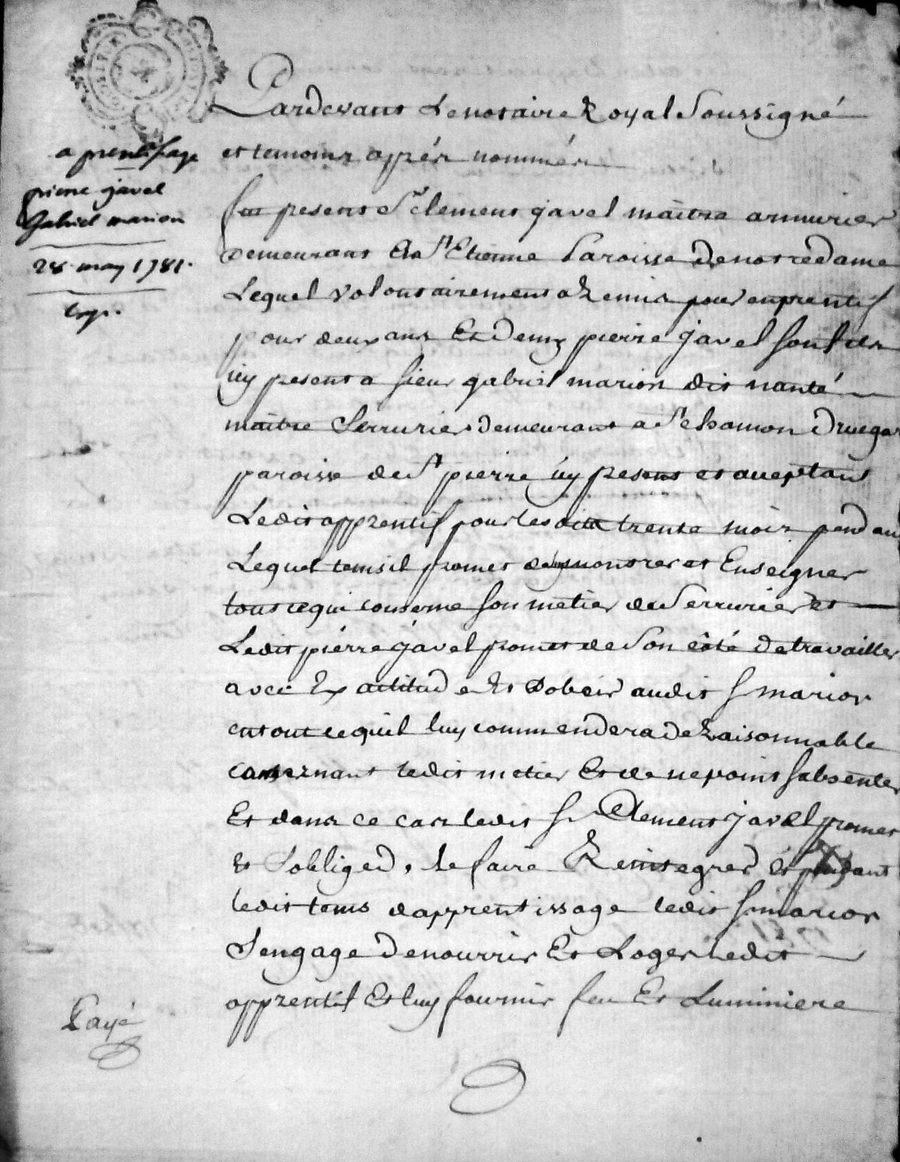 aprentisage
pierre javel
Gabriel marion
28 may 1781.
Exp.
Pardevant Le notaire Royal Soussigné
et temoins apprés nommés
fut present Sr. clement javel maitre armurier
demeurant En St Etienne Paroisse de notre dame
Lequel volontairement a Remis pour enprentif
pour deux ans Et Demy pierre javel son fils
icy present a sieur gabriel marion dit nanté
maitre Serrurier demeurant a St chamon
paroisse de St pierre icy present et aceptant
Ledit apprentif pour lesdits trente mois pendant
Lequel tems il promet de montrer et Enseigner
tout ce qui conserne son metier de Serrurier et
Ledit pierre javel promet de Son côté de travailler
avec Exactitude Et d'obeir audit Sr marion
en tout ce quil luy commendera de Raisonnable
consernant ledit metier Et de ne point sabsenter
Et dans ce cas ledit Sr Clement javel promet
Et Soblige de le faire Reintegrer Et pendant
ledit tems d'apprentissage ledit Sr marion
S'engage de nourrir Et Loger ledit
apprentif Et luy fournir feu Et Luminiere
Payé